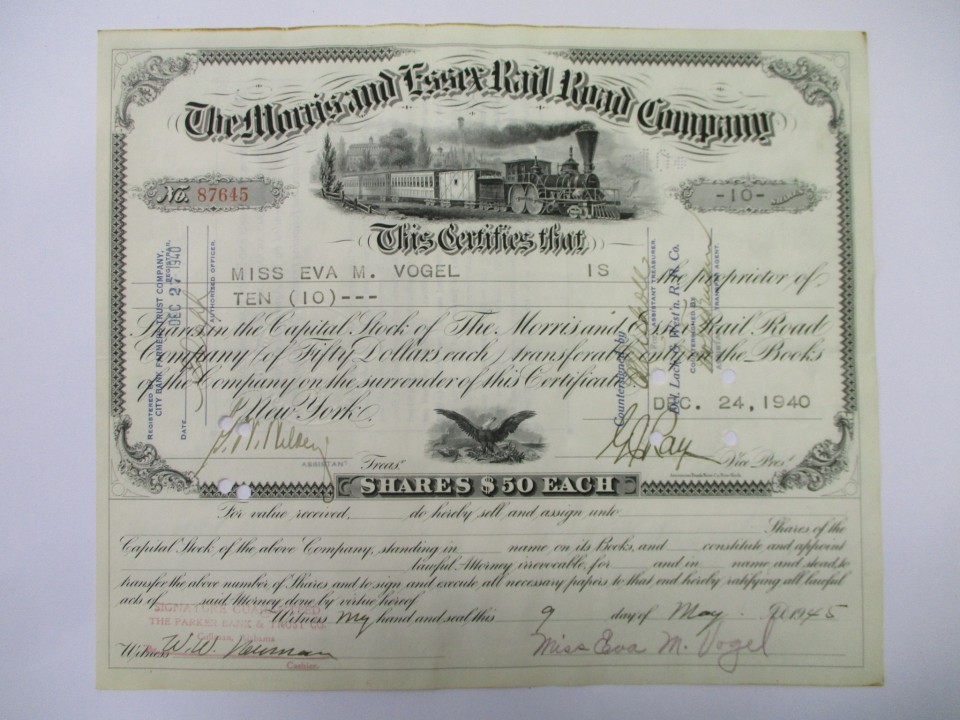 The Morris and Essex Rail Road Company
No. 87645
-10-
This Certifies that
MISS EVA M. VOGEL IS the proprietor of
TEN (10)---
Shares in the Capital Stock of The Morris and Essex Rail Road
Company (of Fifty Dollars each) transferable only on the Books
of the Company on the surrender of this Certificate
New York DEC. 24, 1940
REGISTERED BY
CITY BANK FARMERS TRUST COMPANY,
REGISTRAR.
DATE DEC 27 1940
AUTHORISED OFFICER.
Countersigned by
ASSISTANT TREASURER.
Del. Lack. & West'n. R.R. Co.
COUNTERSIGNED BY
TRANSFER AGENT.
ASSISTANT Treasr.
Vice Prest.
SHARES $50 EACH
For value received, do hereby sell and assign unto
Shares of the
Capital Stock of the above Company, standing in name on its Books, and constitute and appoint
lawful Attorney irrevocable, for and in name and stead, to
transfer the above number of Shares and to sign and execute all necessary papers to that end hereby ratifying all lawful
acts of said Attorney done by virtue hereof
Witness My hand and seal this 9 day of May A.D. 1945
SIGNATURE GUARANTEED
THE PARKER BANK & TRUST CO.
Cullman, Alabama
Witness W. W. Newman
Cashier.
Miss Eva M. Vogel